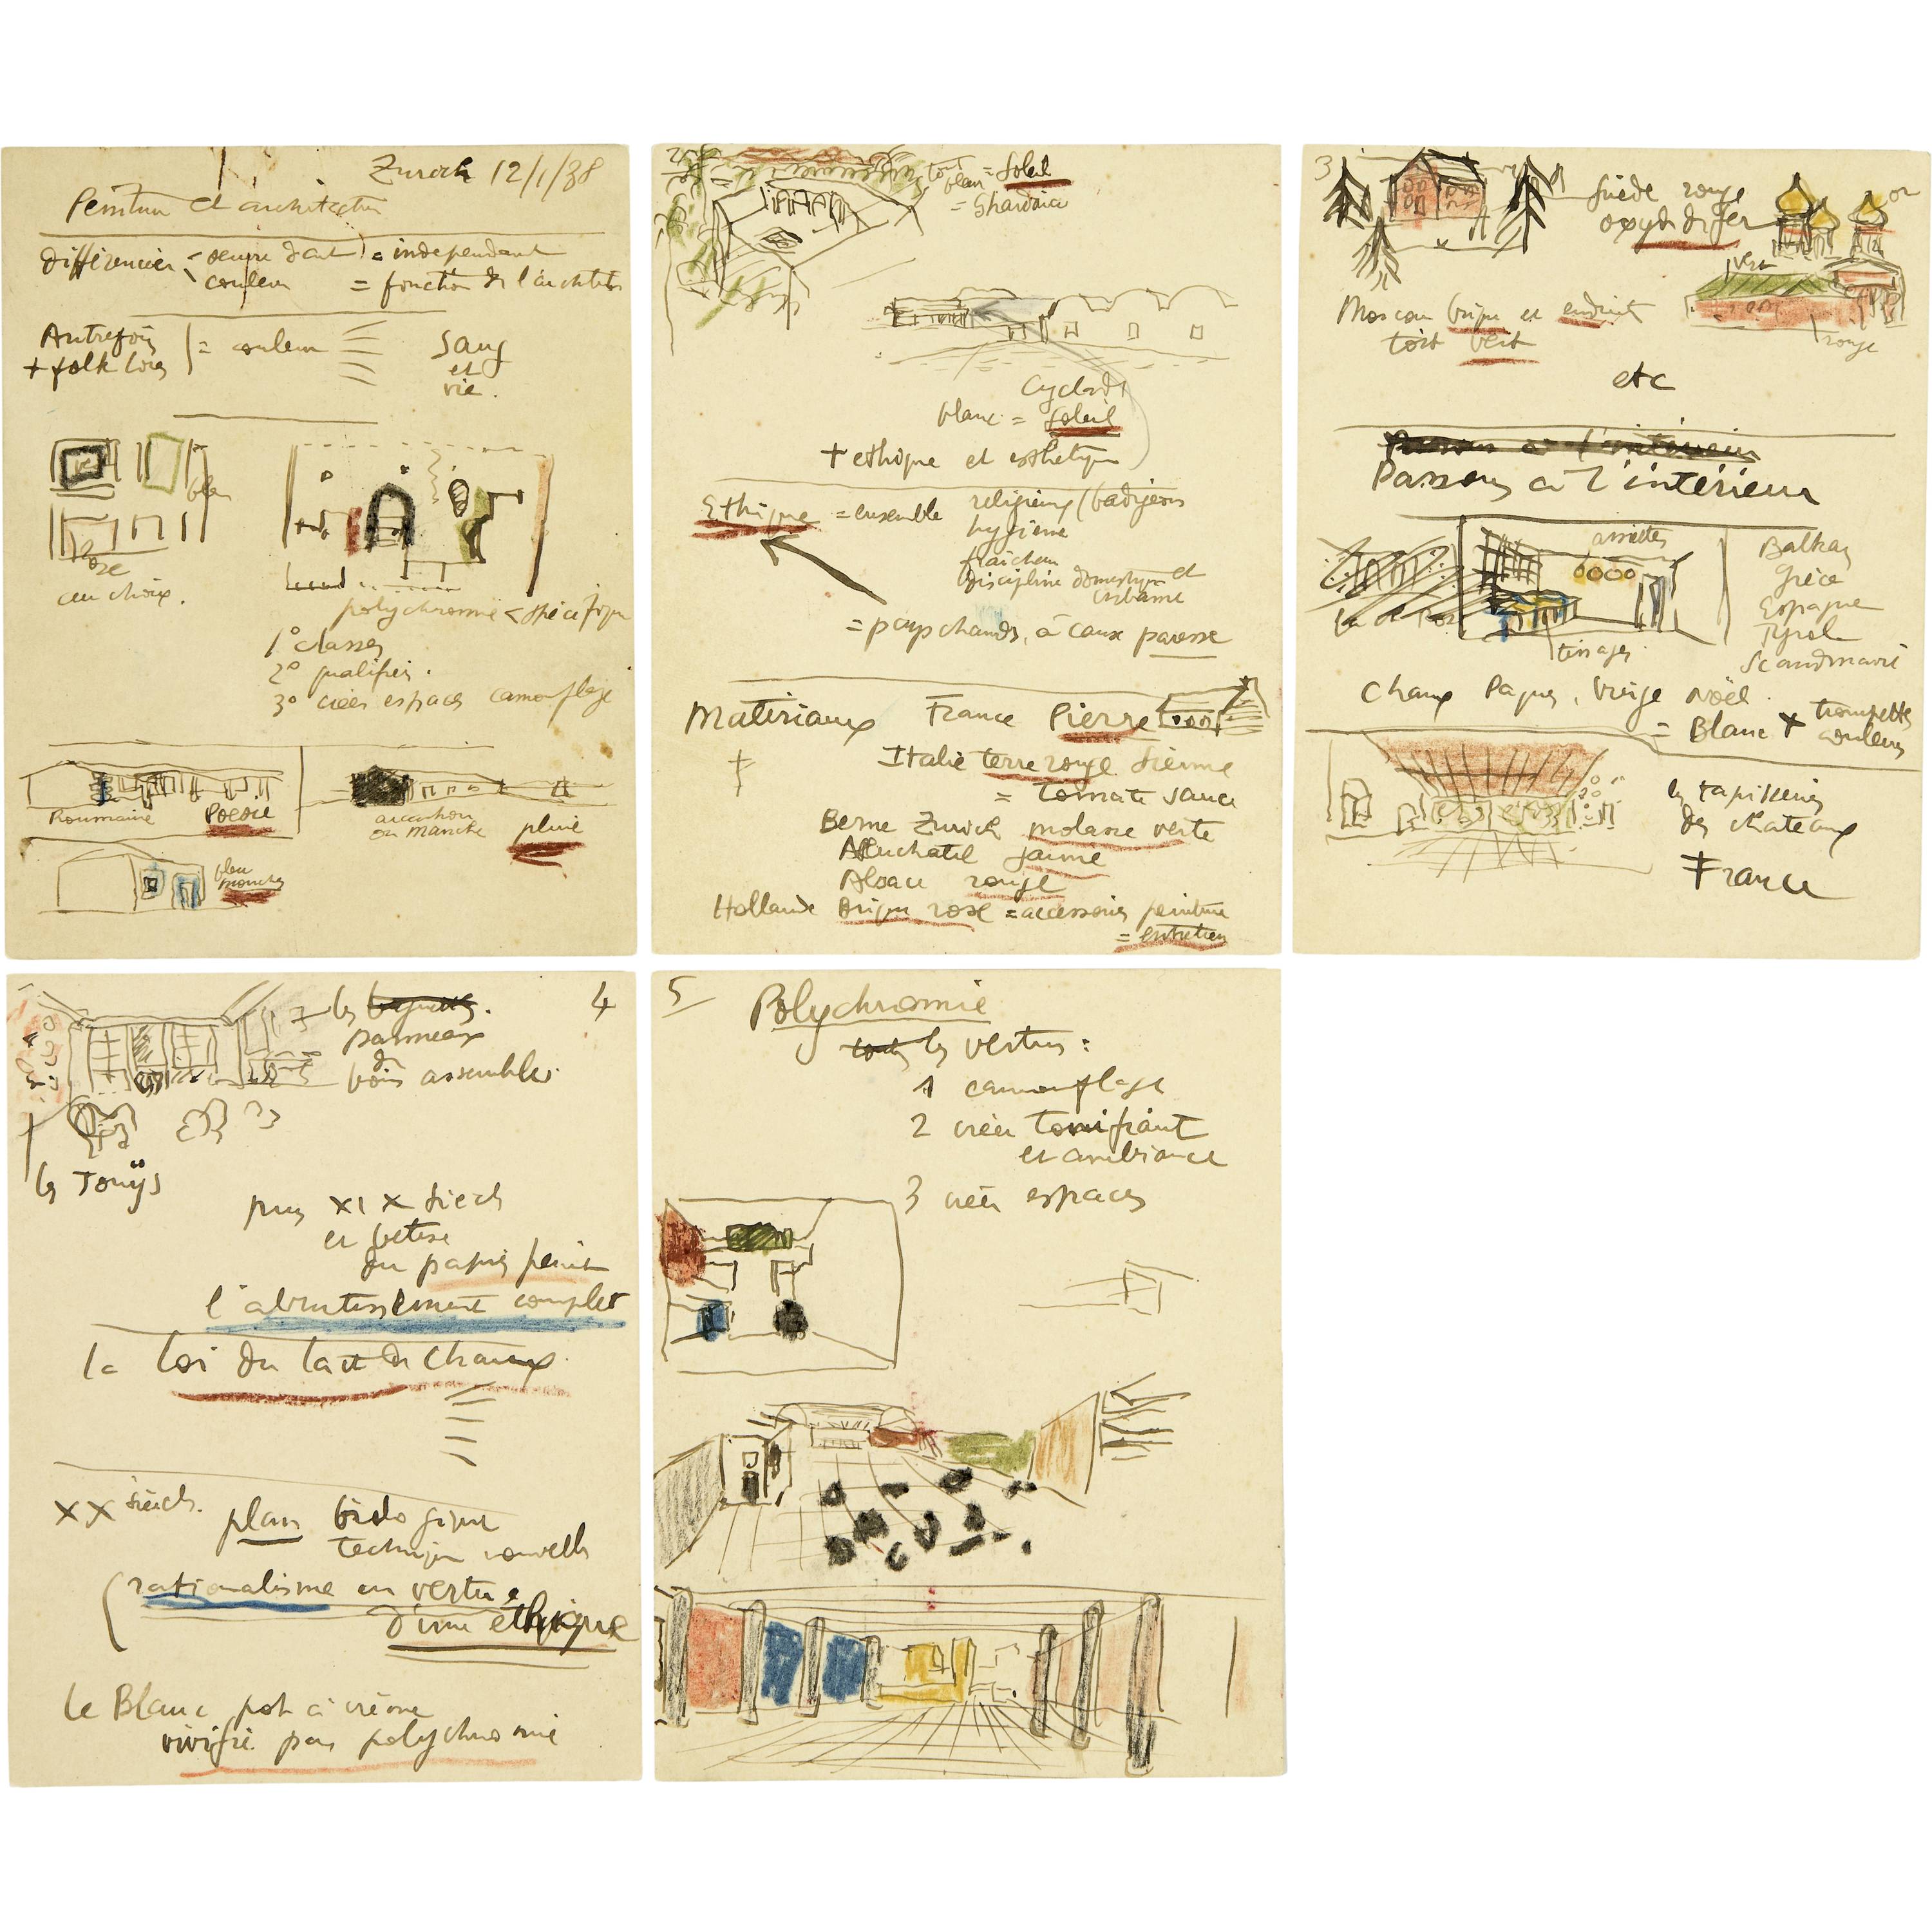 Zurich 12/1/38
Peinture et architecture
différencier oeuvre d'art = indépendant
couleur = fonction de l'architecte
Autrefois
+ folklores = couleur sang
et
vie.
bleu
rose
au choix.
polychromie < spécifique
1° classer
2° qualifier.
3° créer espaces camouflage
Roumanie Poésie
arcachon
ou manche pluie
bleu
mouches
2
tout
blanc = soleil
= Ghardaia
Cyclades
blanc = soleil
+ ethique et esthetique
Ethique = ensemble religieux (badigeons
hygiène
fraicheur
discipline domestique et
urbaine
= pays chauds, à eaux paresse
Matériaux France Pierre
Italie terre rouge Sienne
= tomate sauce
Berne Zurich molasse verte
Neuchatel jaune
Alsace rouge
Hollande Brique rose = accessoires peinture
= entretien
3
Suède rouge
oxyde de fer
or
vert
Moscou brique et enduit
toit vert
rouge
etc
Passons à l'intérieur
Passons à l'intérieur
assiettes
tissages
Balkan
Grèce
Espagne
Tyrol
Scandinavie
Chaux Paques, Vierge Noël
= Blanc + trompettes
couleurs
les tapisseries
des chateaux
France
4
les
panneaux
de
bois assemblés
les Jouÿs
puis XIX siecle
et betise
du papier peint
l'abrutissement complet
la loi du lait de chaux
XX siècle. plan biologique
technique nouvelle
(rationalisme en vertu
d'une ethique
le Blanc pot à crème
vivifié par polychromie
5
Polychromie
toutes les vertus :
1 camouflage
2 créer tonifiant
et ambiance
3 créer espaces